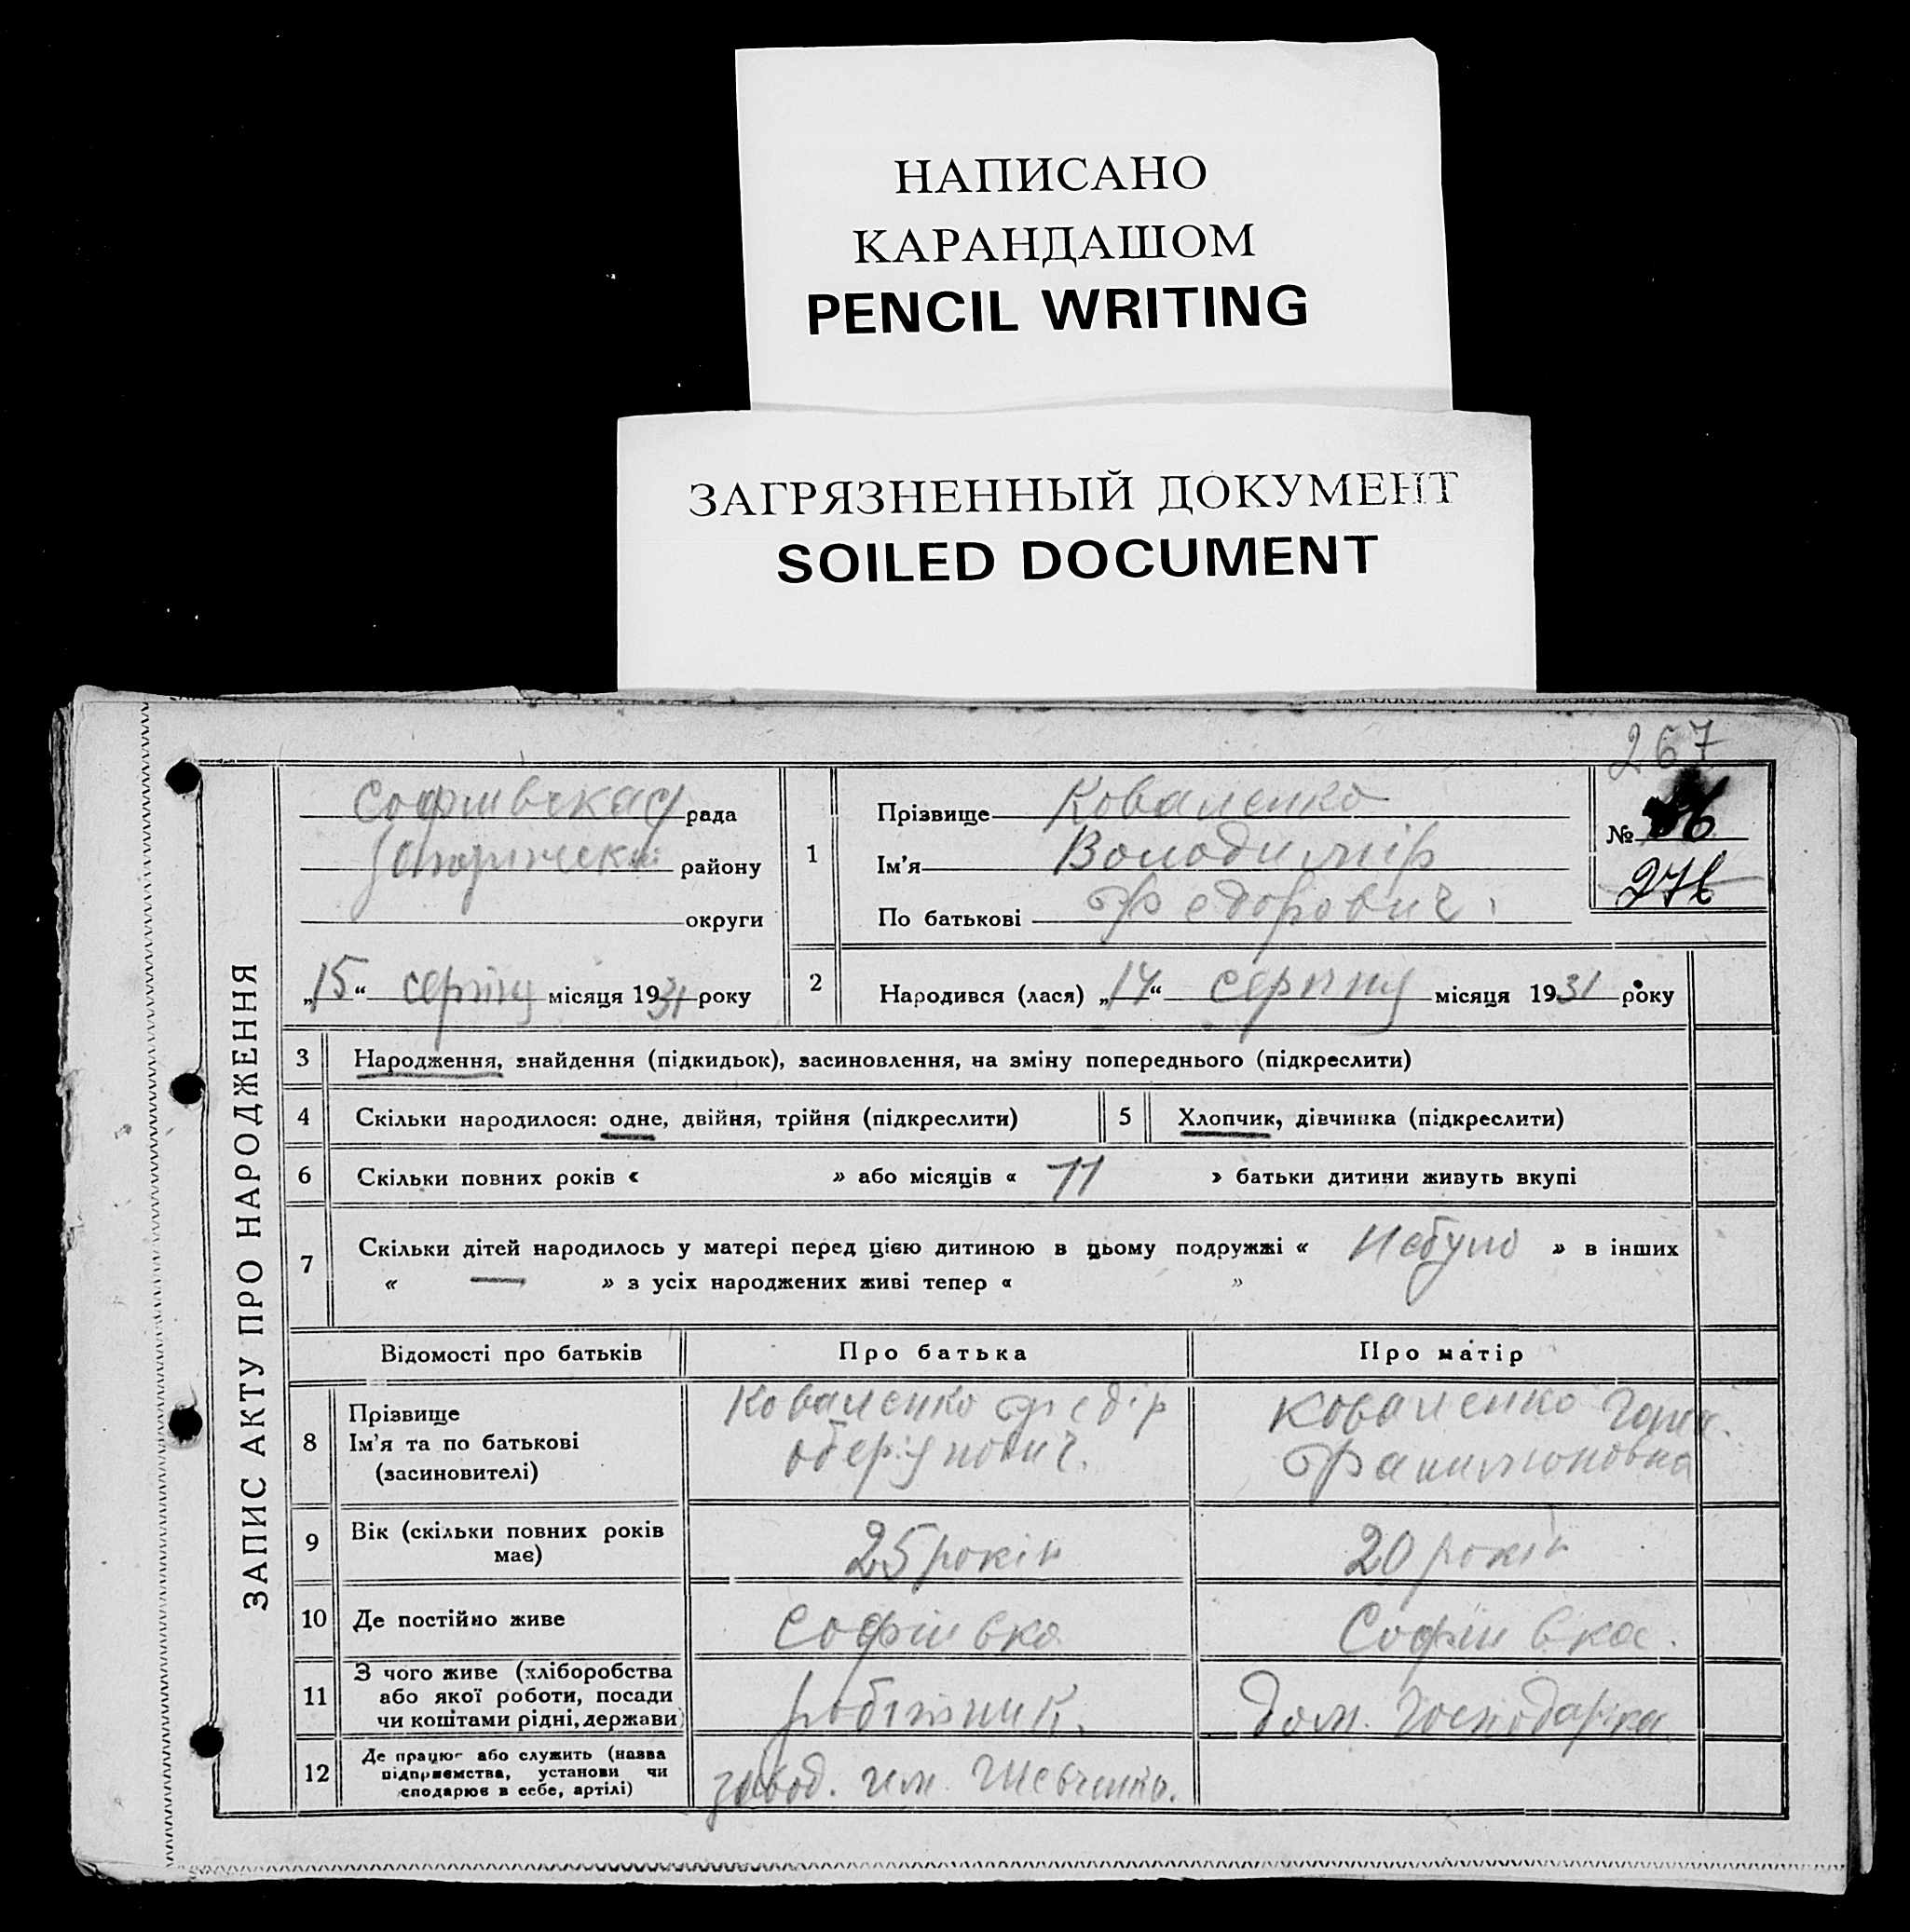 НАПИСАНО
КАРАНДАШОМ
PENCIL WRITING
ЗАГРЯЗНЕННЫЙ ДОКУМЕНТ
SOILED DOCUMENT
267
ЗАПИС АКТУ ПРО НАРОДЖЕННЯ
рада
району
округи
„15“ серпня місяця 1931 року
1
Прізвище Коваленко
Ім’я Володимір
По батькові Федорович
№
276
2 Народився (лася) „14“ серпня місяця 1931 року
3 Народження, знайдення (підкидьок), засиновлення, на зміну попереднього (підкреслити)
4 Скільки народилося: одне, двійня, трійня (підкреслити) 5 Хлопчик, дівчинка (підкреслити)
6 Скільки повних років « » або місяців « 11 » батьки дитини живуть вкупі
7 Скільки дітей народилось у матері перед цією дитиною в цьому подружжі « Небуло » в інших
« — » з усіх народжених живі тепер « »
Відомості про батьків Про батька Про матір
8 Прізвище
Ім’я та по батькові
(засиновителі)
Коваленко Федір
Коваленко
9 Вік (скільки повних років
має)
25 років 20 років
10 Де постійно живе Софіївка Софіївка.
11 З чого живе (хліборобства
або якої роботи, посади
чи коштами рідні, держави)
робітник. Дом. Господарка
12 Де працює або служить (назва
підприємства, установи чи
сподарює в себе, артілі)
завод. им. Шевченко.